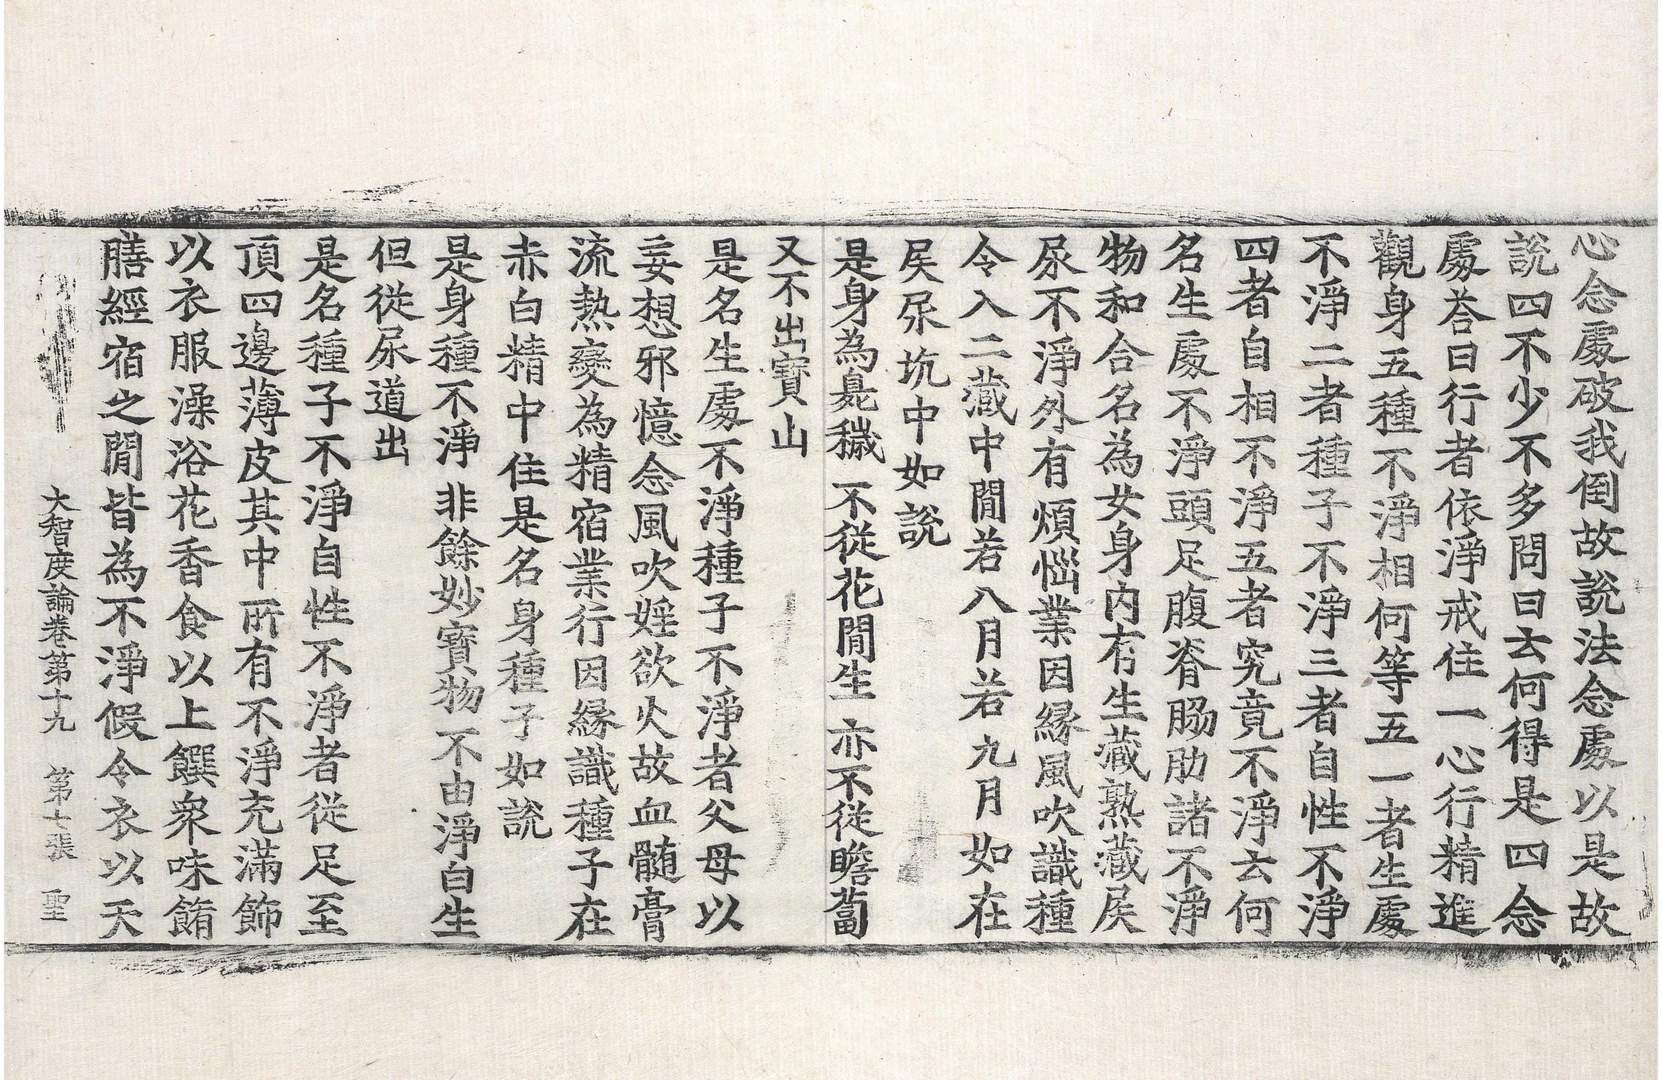 心念處破我倒故說法念處以是故
說四不少不多問曰云何得是四念
處荅曰行者依淨戒住一心行精進
觀身五種不淨相何等五一者生處
不淨二者種子不淨三者自性不淨
四者自相不淨五者究竟不淨云何
名生處不淨頭足腹脊脇肋諸不淨
物和合名為女身內有生藏熟藏屎
尿不淨外有煩惱業因緣風吹識種
令入二藏中間若八月若九月如在
屎尿坑中如說
是身為臭穢　不從花間生　亦不從瞻蔔
又不出寶山
是名生處不淨種子不淨者父母以
妄想邪憶念風吹婬欲火故血髓膏
流熱變為精宿業行因緣識種子在
赤白精中住是名身種子如說
是身種不淨　非餘妙寶物　不由淨白生
但從尿道出
是名種子不淨自性不淨者從足至
頂四邊薄皮其中所有不淨充滿飾
以衣服澡浴花香食以上饌衆味餚
膳經宿之間皆為不淨假令衣以天
大智度論卷第十九　第七張　聖